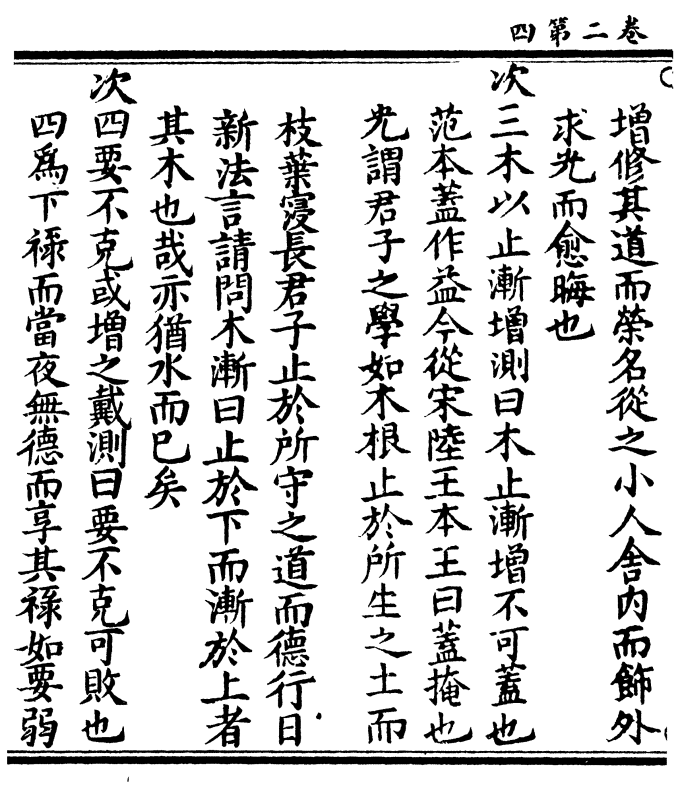 卷二第四
增修其道而榮名從之小人舍内而飾外
求光而愈晦也
次三木以止漸增測曰木止漸增不可蓋也
范本蓋作益今從宋陸王本王曰蓋掩也
光謂君子之學如木根止於所生之土而
枝葉寖長君子止於所守之道而德行日
新法言請問木漸曰止於下而漸於上者
其木也哉亦猶水而已矣
次四要不克或增之戴測曰要不克可敗也
四爲下祿而當夜無德而享其祿如要弱